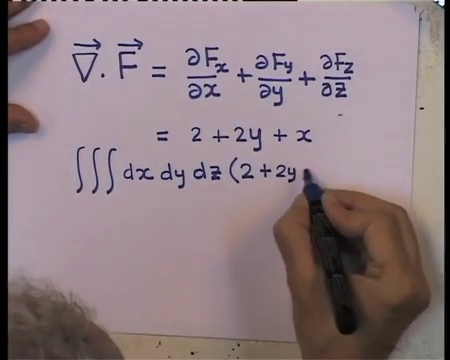 ∇⃗ . F⃗ = ∂Fx/∂x + ∂Fy/∂y + ∂Fz/∂z
= 2 + 2y + x
∫∫∫ dx dy dz (2 + 2y